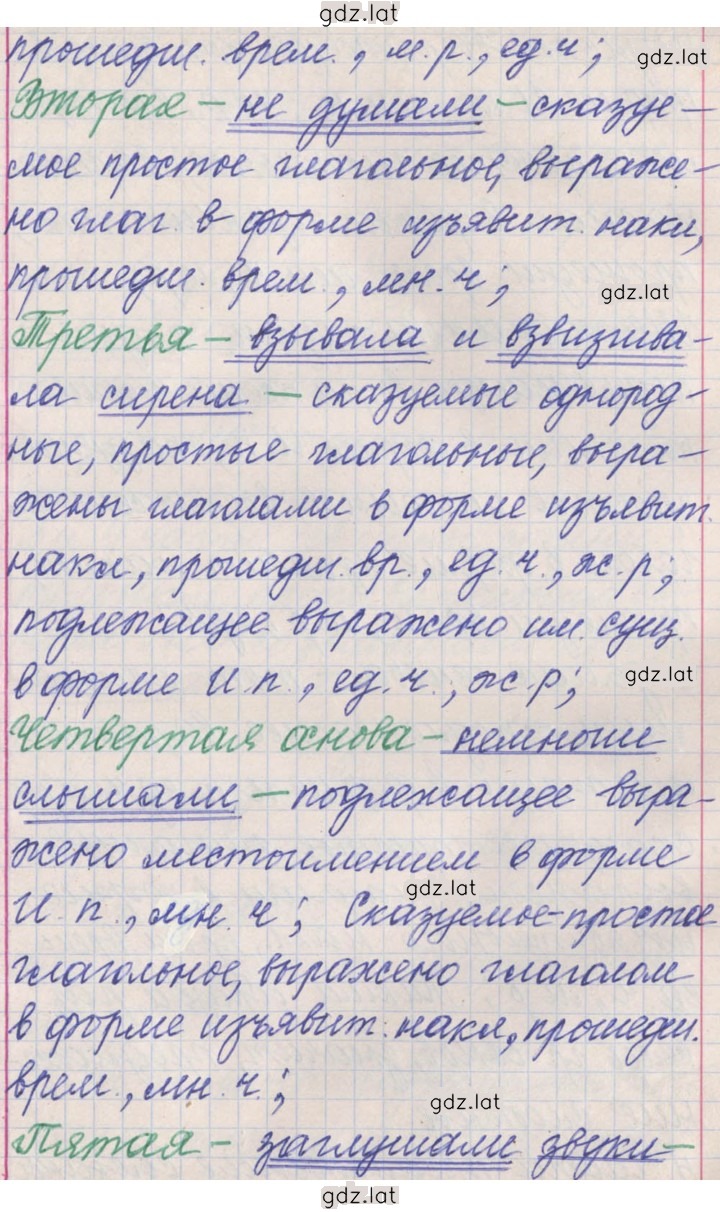 gdz.lat
прошедш. врем., м.р., ед.ч;
gdz.lat
Вторая – не думали – сказуе-
мое простое глагольное, выраже-
но глаг. в форме изъявит. накл,
прошедш. врем., мн.ч;
gdz.lat
Третья – взывала и взвизгива-
ла сирена – сказуемые однород-
ные, простые глагольные, выра-
жены глаголами в форме изъявит.
накл, прошедш. вр., ед.ч., ж.р;
подлежащее выражено им. сущ.
в форме И.п., ед.ч., ж.р;
gdz.lat
Четвертая основа – немногие
слышали – подлежащее выра-
жено местоимением в форме
gdz.lat
И.п., мн.ч; Сказуемое-простое
глагольное, выражено глаголом
в форме изъявит. накл, прошедш.
врем., мн.ч.;
gdz.lat
Пятая – заглушали звуки –
gdz.lat